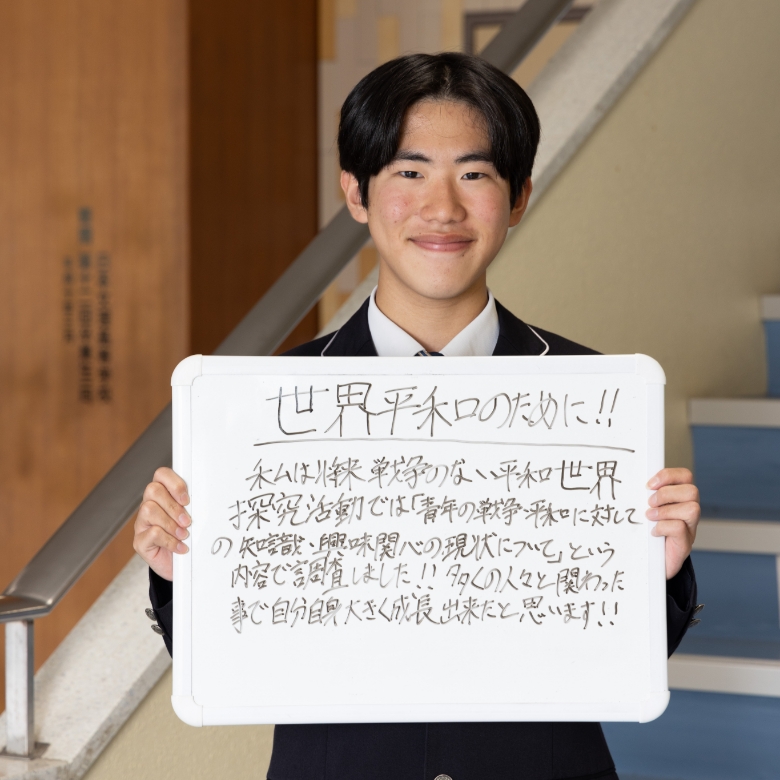 世界平和のために!!
私は将来戦争のない平和世界
探究活動では「青年の戦争・平和に対して
の知識・興味関心の現状について」という
内容で調査しました!! 多くの人々と関わった
事で自分自身大きく成長出来たと思います!!